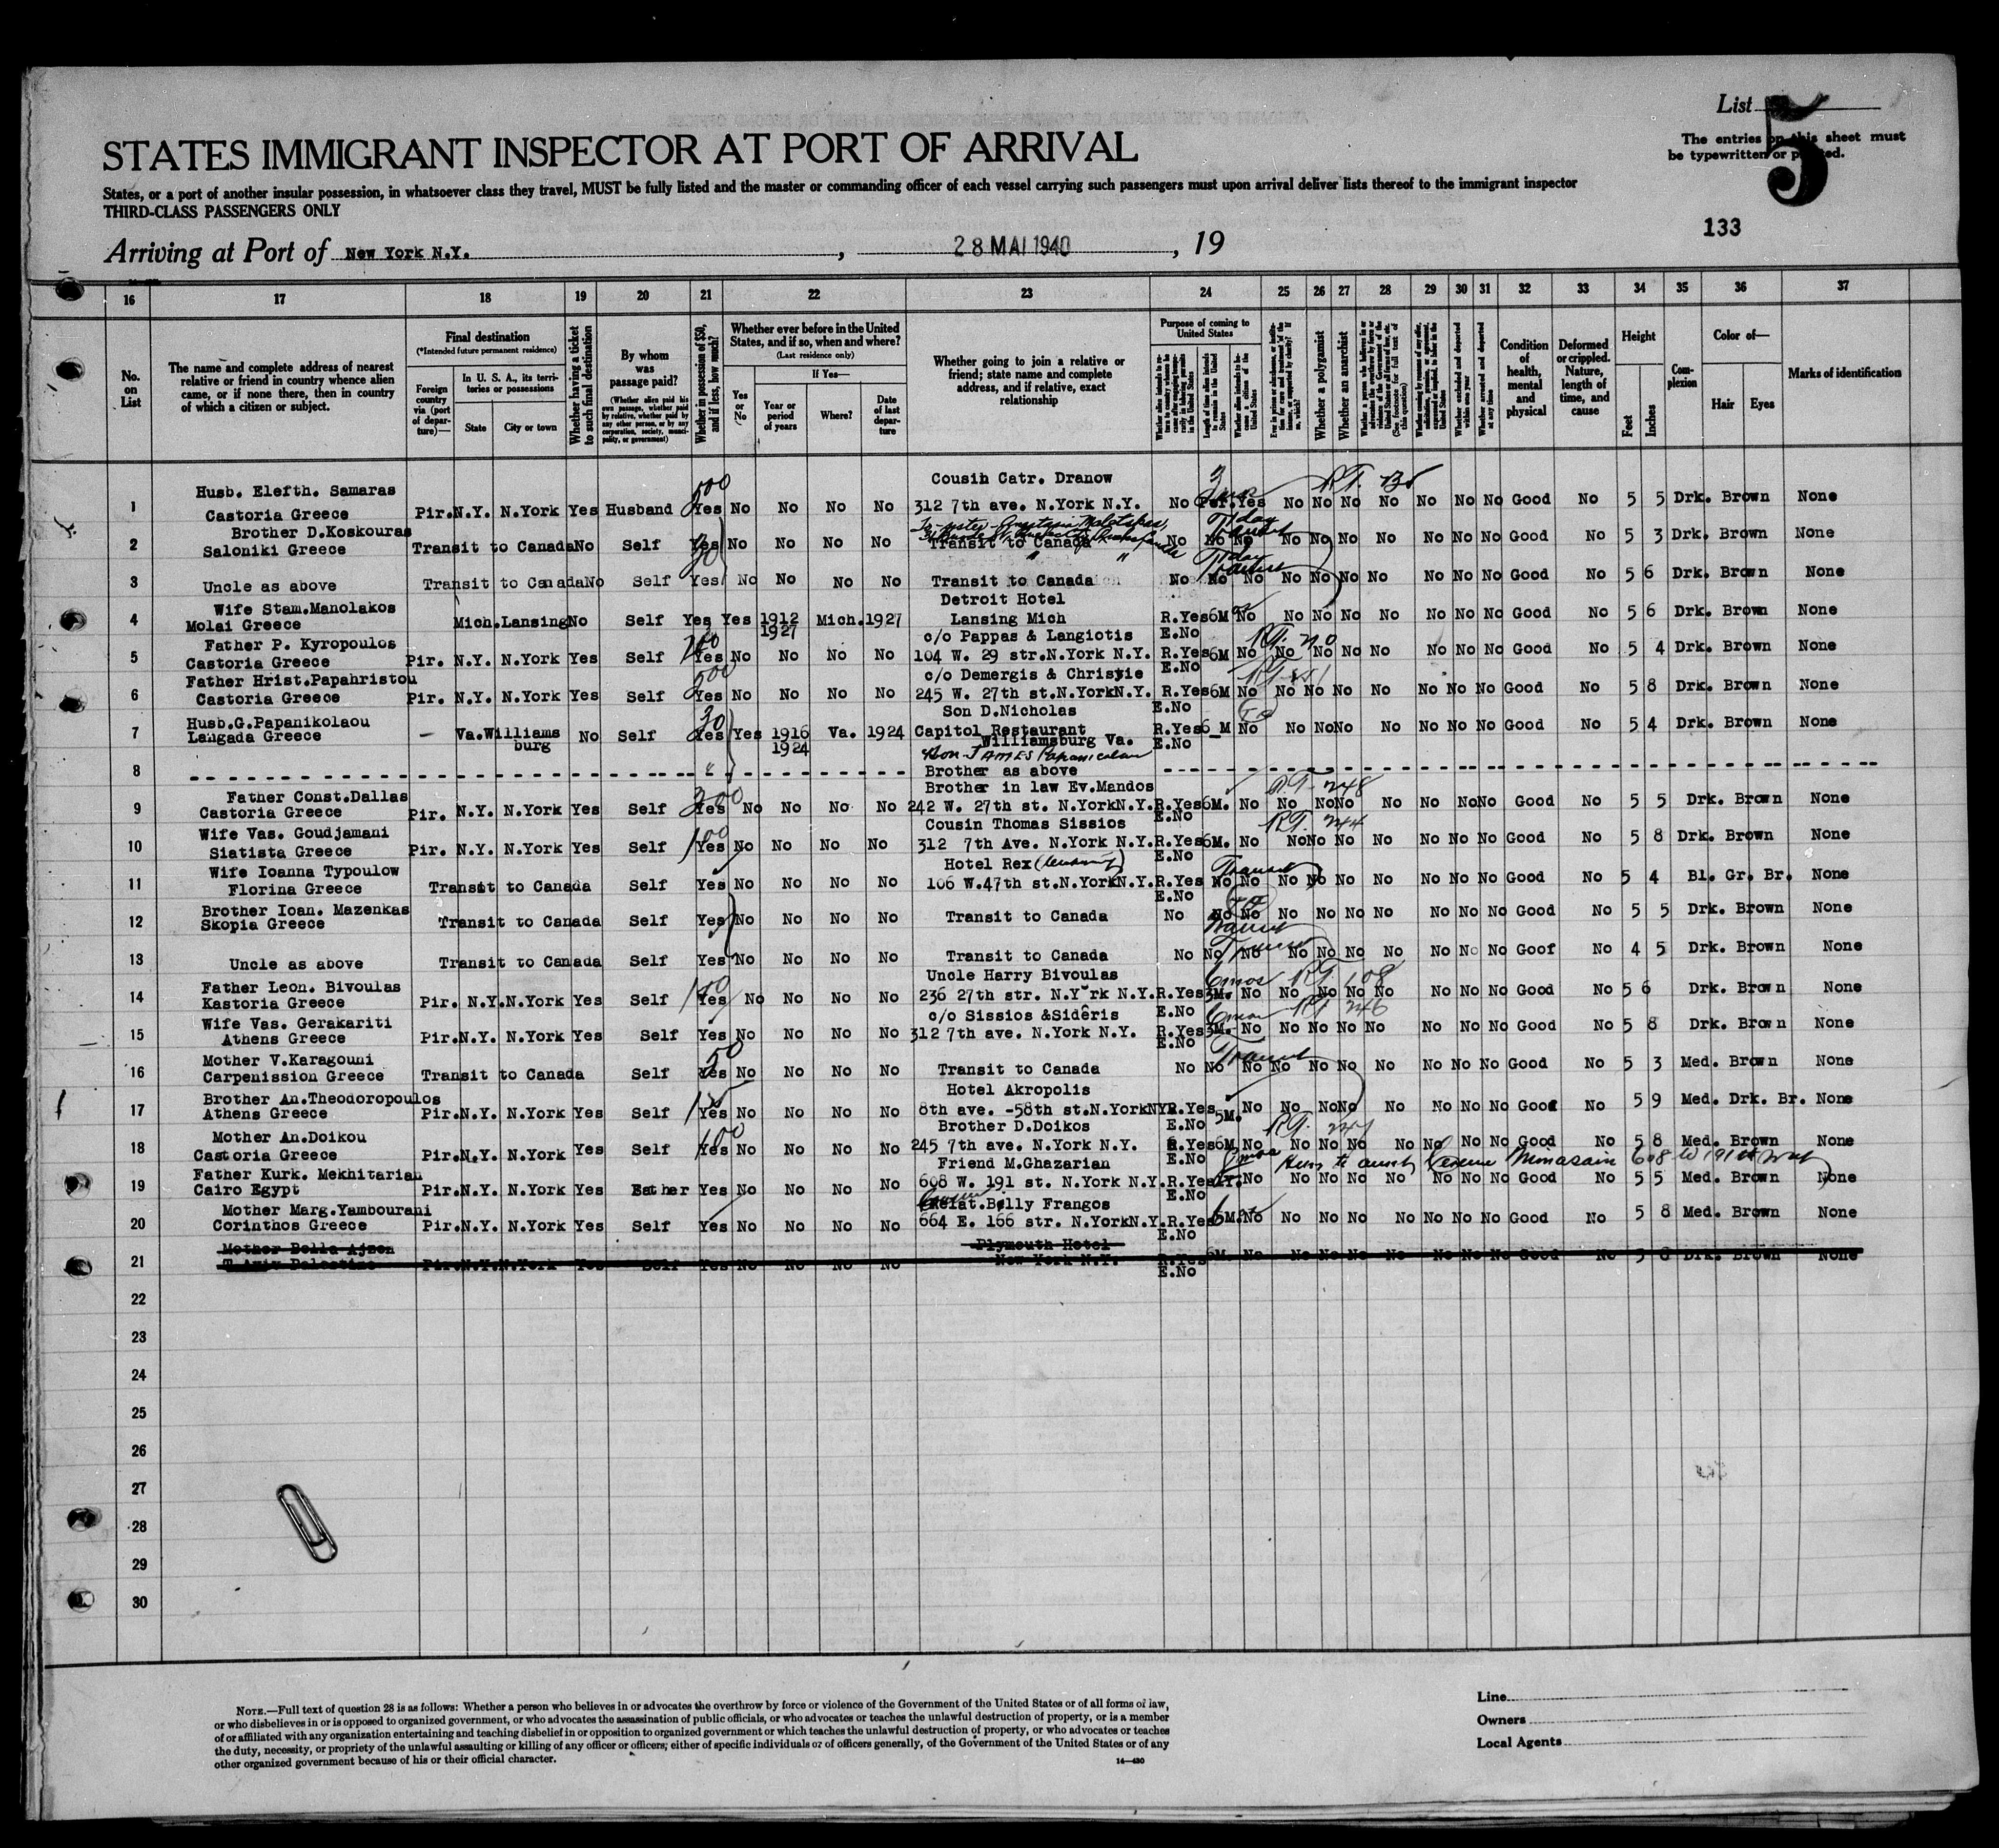 List 5
The entries on this sheet must
be typewritten or printed.
STATES IMMIGRANT INSPECTOR AT PORT OF ARRIVAL
States, or a port of another insular possession, in whatsoever class they travel, MUST be fully listed and the master or commanding officer of each vessel carrying such passengers must upon arrival deliver lists thereof to the immigrant inspector
THIRD-CLASS PASSENGERS ONLY
133
Arriving at Port of New York N.Y. , 28 MAI 1940 , 19
16 17 18 19 20 21 22 23 24 25 26 27 28 29 30 31 32 33 34 35 36 37
No. on List
The name and complete address of nearest relative or friend in country whence alien came, or if none there, then in country of which a citizen or subject.
Final destination
(*Intended future permanent residence)
Foreign country via (port of departure)—
In U. S. A., its territories or possessions
State City or town
Whether having a ticket to such final destination
By whom was passage paid?
(Whether alien paid his own passage, whether paid by relative, whether paid by any other person, or by any corporation, society, municipality, or government)
Whether in possession of $50, and if less, how much?
Whether ever before in the United States, and if so, when and where?
(Last residence only)
Yes or No
If Yes—
Year or period of years Where? Date of last departure
Whether going to join a relative or friend; state name and complete address, and if relative, exact relationship
Purpose of coming to United States
Whether a polygamist
Whether an anarchist
Condition of health, mental and physical
Deformed or crippled. Nature, length of time, and cause
Height
Feet Inches
Complexion
Color of—
Hair Eyes
Marks of identification
Cousin Catr. Dranow
Husb. Elefth. Samaras
1 Castoria Greece Pir. N.Y. N.York Yes Husband 500 Yes No No No No 312 7th ave. N.York N.Y. No Per. Yes No No No No No No No Good No 5 5 Drk. Brown None
Brother D.Koskouras
2 Saloniki Greece Transit to Canada No Self Yes No No No No Transit to Canada No No No No No No No No No No Good No 5 3 Drk. Brown None
3 Uncle as above Transit to Canada No Self Yes No No No No Transit to Canada No No No No No No No No No No Good No 5 6 Drk. Brown None
Wife Stam.Manolakos Detroit Hotel
4 Molai Greece Mich. Lansing No Self Yes Yes 1912 1927 Mich. 1927 Lansing Mich R.Yes 6M No No No No No No No No Good No 5 6 Drk. Brown None
E.No
Father P. Kyropoulos c/o Pappas & Langiotis
5 Castoria Greece Pir. N.Y. N.York Yes Self Yes No No No No 104 W. 29 str.N.York N.Y. R.Yes 6M No No No No No No No No Good No 5 4 Drk. Brown None
E.No
Father Hrist.Papahristou c/o Demergis & Christie
6 Castoria Greece Pir. N.Y. N.York Yes Self 500 Yes No No No No 245 W. 27th st.N.YorkN.Y. R.Yes 6M No No No No No No No No Good No 5 8 Drk. Brown None
E.No
Husb.G.Papanikolaou Son D.Nicholas
7 Langada Greece - Va. Williamsburg No Self 30 Yes Yes 1916 1924 Va. 1924 Capitol Restaurant Williamsburg Va. R.Yes 6 M No No No No No No No No Good No 5 4 Drk. Brown None
E.No
Son-JAMES Papanicolau
8 Brother as above
Father Const.Dallas Brother in law Ev.Mandos R.T. 248
9 Castoria Greece Pir. N.Y. N.York Yes Self 200 Yes No No No No 242 W. 27th st. N.YorkN.Y. R.Yes 6M. No No No No No No No No Good No 5 5 Drk. Brown None
E.No
Wife Vas. Goudjamani Cousin Thomas Sissios R.T. 244
10 Siatista Greece Pir. N.Y. N.York Yes Self 100 Yes No No No No 312 7th Ave. N.York N.Y. R.Yes 6M. No No No No No No No No Good No 5 8 Drk. Brown None
E.No
Wife Ioanna Typoulow Hotel Rex Transit
11 Florina Greece Transit to Canada Self Yes No No No No 106 W.47th st.N.YorkN.Y. R.Yes No No No No No No No No No Good No 5 4 Bl. Gr. Br. None
E.No
Brother Ioan. Mazenkas
12 Skopia Greece Transit to Canada Self Yes No No No No Transit to Canada No No No No No No No No No No Good No 5 5 Drk. Brown None
Transit
13 Uncle as above Transit to Canada Self Yes No No No No Transit to Canada No No No No No No No No No No Goof No 4 5 Drk. Brown None
Father Leon. Bivoulas Uncle Harry Bivoulas 6mos R.T. 108
14 Kastoria Greece Pir. N.Y. N.York Yes Self Yes No No No No 236 27th str. N.Y rk N.Y. R.Yes 3M. No No No No No No No No Good No 5 6 Drk. Brown None
Wife Vas. Gerakariti c/o Sissios &Sideris E.No 6mos R.T. 246
15 Athens Greece Pir. N.Y. N.York Yes Self Yes No No No No 312 7th ave. N.York N.Y. R.Yes 3M. No No No No No No No No Good No 5 8 Drk. Brown None
E.No
Mother V.Karagouni Transit
16 Carpenission Greece Transit to Canada Self 50 Yes No No No No Transit to Canada No No No No No No No No No No Good No 5 3 Med. Brown None
Brother An.Theodoropoulos Hotel Akropolis
17 Athens Greece Pir. N.Y. N.York Yes Self Yes No No No No 8th ave. -58th st.N.YorkNY R.Yes 5M. No No No No No No No No Good No 5 9 Med. Drk. Br. None
E.No
Mother An.Doikou Brother D.Doikos
18 Castoria Greece Pir.N.Y. N.York Yes Self 100 Yes No No No No 245 7th ave. N.York N.Y. R.Yes 6M. No No No No No No No No Good No 5 8 Med. Brown None
E.No
Father Kurk. Mekhitarian Friend M.Ghazarian 608 W 191st
19 Cairo Egypt Pir. N.Y. N.York Yes Father Yes No No No No 608 W. 191 st. N.York N.Y. R.Yes No No No No No No No No Good No 5 5 Med. Brown None
E.No
Mother Marg.Yambourani Relat. Billy Frangos
20 Corinthos Greece Pir. N.Y. N.York Yes Self Yes No No No No 664 E. 166 str. N.YorkN.Y. R.Yes 6M. No No No No No No No No Good No 5 8 Med. Brown None
E.No
Mother Bella Ajzen Plymouth Hotel
21 T.Aviv Palestine Pir. N.Y. N.York Yes Self Yes No No No No New York N.Y. R.Yes 6M. No No No No No No No No Good No 5 8 Drk. Brown None
E.No
22
23
24
25
26
27
28
29
30
NOTE.—Full text of question 28 is as follows: Whether a person who believes in or advocates the overthrow by force or violence of the Government of the United States or of all forms of law,
or who disbelieves in or is opposed to organized government, or who advocates the assassination of public officials, or who advocates or teaches the unlawful destruction of property, or is a member
of or affiliated with any organization entertaining and teaching disbelief in or opposition to organized government or which teaches the unlawful destruction of property, or who advocates or teaches
the duty, necessity, or propriety of the unlawful assaulting or killing of any officer or officers; either of specific individuals or of officers generally, of the Government of the United States or of any
other organized government because of his or their official character.
14—430
Line
Owners
Local Agents